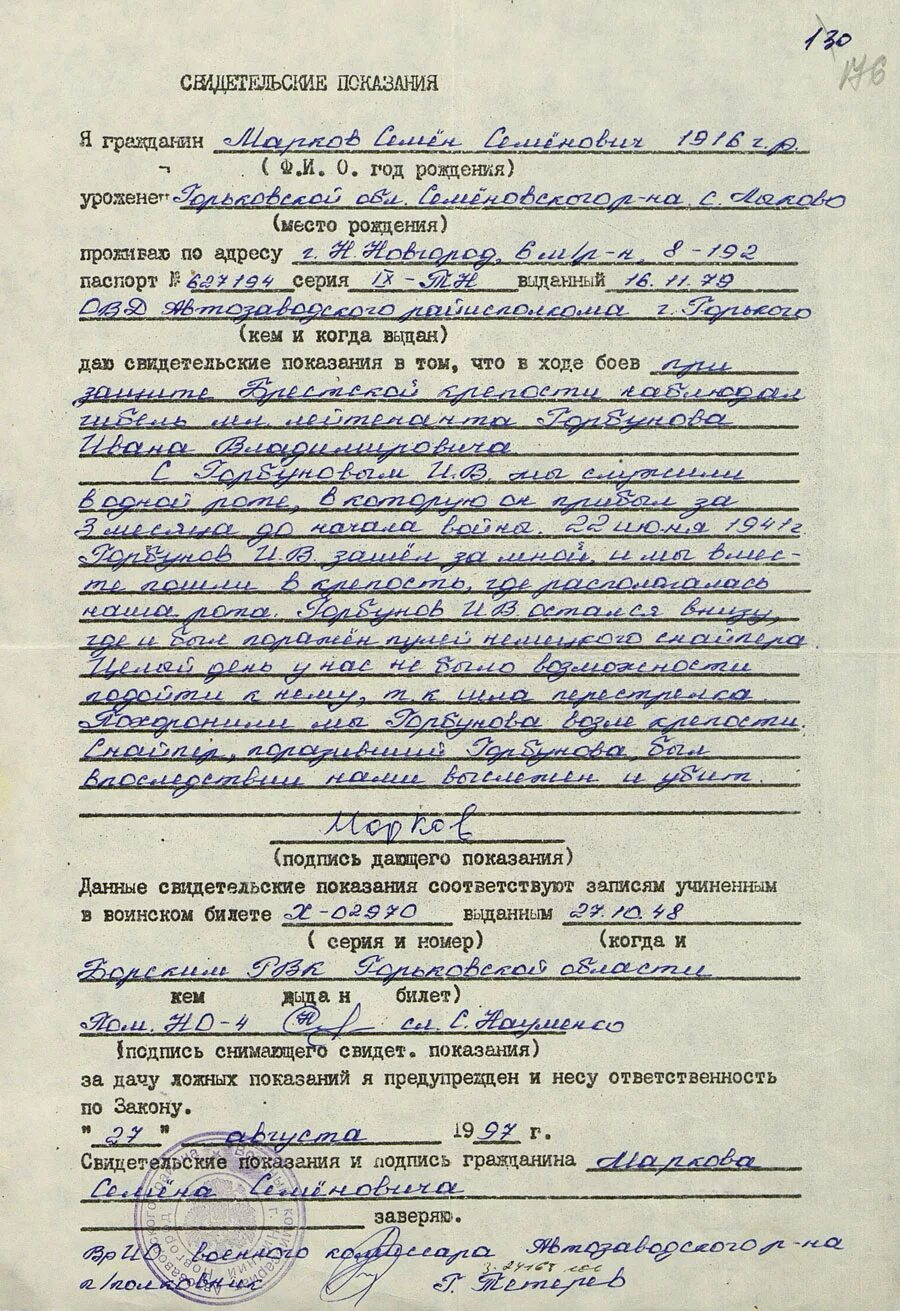 130
176
СВИДЕТЕЛЬСКИЕ ПОКАЗАНИЯ
Я гражданин Марков Семён Семёнович 1916 г. р.
( Ф.И. О. год рождения)
уроженец Горьковской обл. Семёновского р-на с. Лыково
(место рождения)
проживаю по адресу г. Н. Новгород, 6 м/р-н, 8-192
паспорт № 627194 серия IX-ТН выданный 16.11.79
ОВД Автозаводского райисполкома г. Горького
(кем и когда выдан)
даю свидетельские показания в том, что в ходе боев при
защите Брестской крепости наблюдал
гибель мл. лейтенанта Горбунова
Ивана Владимировича
С Горбуновым И.В. мы служили
в одной роте, в которую он прибыл за
3 месяца до начала войны. 22 июня 1941 г
Горбунов И.В. зашёл за мной, и мы вмес-
те пошли в крепость, где располагалась
наша рота. Горбунов И.В. остался внизу,
где и был поражён пулей немецкого снайпера
Целый день у нас не было возможности
подойти к нему, т.к шла перестрелка.
Похоронили мы Горбунова возле крепости.
Снайпер, поразивший Горбунова, был
впоследствии нами выслежен и убит.
Марков
(подпись дающего показания)
Данные свидетельские показания соответствуют записям учиненным
в воинском билете X-02970 выданным 27.10.48
( серия и номер) (когда и
Борским РВК Горьковской области
кем выдан билет)
Пом. НО-4 сл. С. Науменко
(подпись снимающего свидет. показания)
за дачу ложных показаний я предупрежден и несу ответственность
по Закону.
" 27 " августа 1997 г.
Свидетельские показания и подпись гражданина Маркова
Семёна Семёновича
заверяю.
ВрИО военного комиссара Автозаводского р-на
п/полковник Г. Тетерев